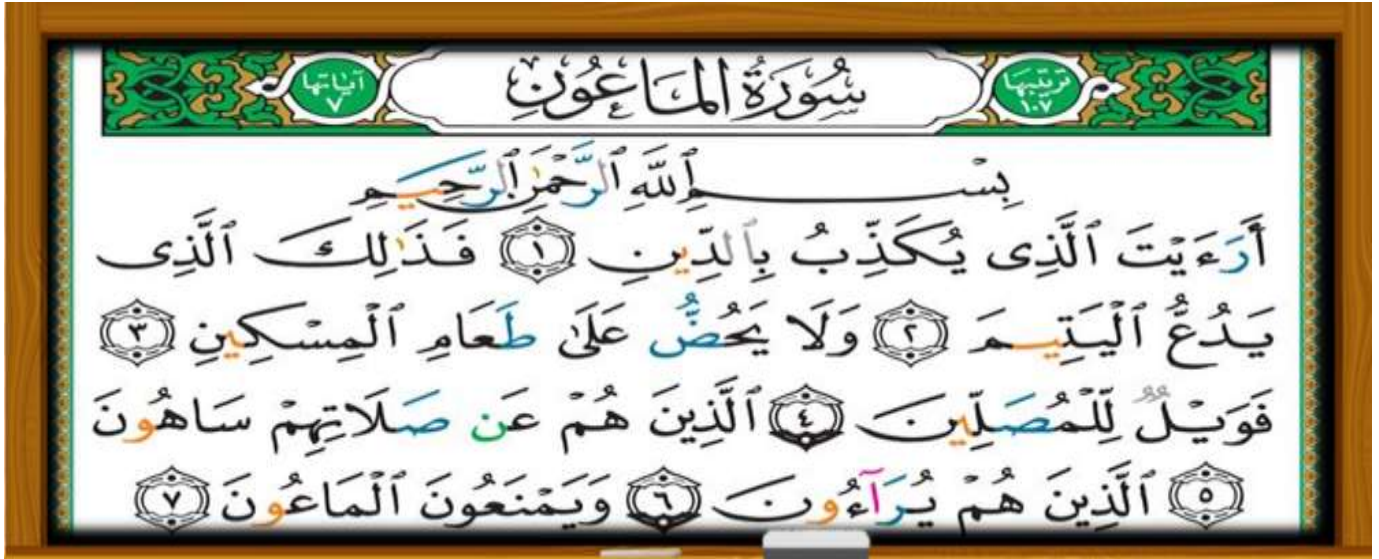 ترتيبها ١٠٧ سُورَةُ الْمَاعُونِ آياتها ٧
بِسْمِ ٱللَّهِ ٱلرَّحْمَٰنِ ٱلرَّحِيمِ
أَرَءَيْتَ ٱلَّذِى يُكَذِّبُ بِٱلدِّينِ ١ فَذَٰلِكَ ٱلَّذِى
يَدُعُّ ٱلْيَتِيمَ ٢ وَلَا يَحُضُّ عَلَىٰ طَعَامِ ٱلْمِسْكِينِ ٣
فَوَيْلٌ لِّلْمُصَلِّينَ ٤ ٱلَّذِينَ هُمْ عَن صَلَاتِهِمْ سَاهُونَ
٥ ٱلَّذِينَ هُمْ يُرَآءُونَ ٦ وَيَمْنَعُونَ ٱلْمَاعُونَ ٧